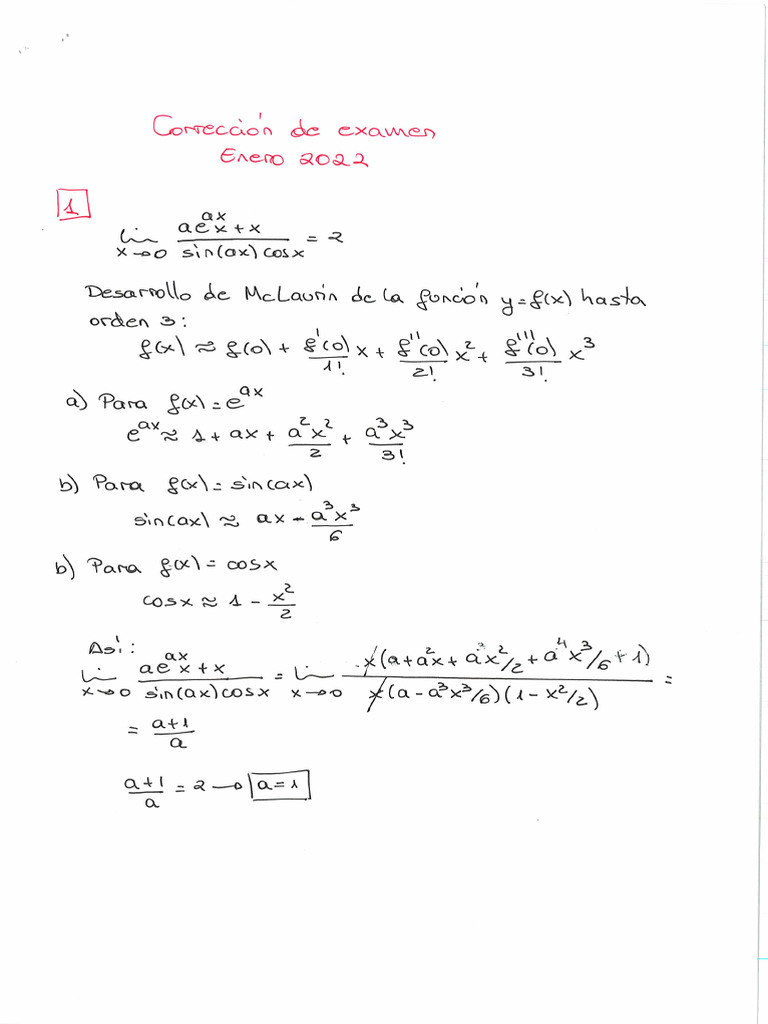 Corrección de examen
Enero 2022
1
lim x→0 (ae^{ax} x + x)/(sin(ax) cos x) = 2
Desarrollo de McLaurin de la función y=f(x) hasta
orden 3:
f(x) ≈ f(0) + f'(0)/1! x + f''(0)/2! x² + f'''(0)/3! x³
a) Para f(x) = e^{ax}
e^{ax} ≈ 1 + ax + a²x²/2 + a³x³/3!
b) Para f(x) = sin(ax)
sin(ax) ≈ ax - a³x³/6
b) Para f(x) = cosx
cosx ≈ 1 - x²/2
Así:
lim x→0 (ae^{ax} x + x)/(sin(ax) cosx) = lim x→0 x(a + a²x + a³x²/2 + a⁴x³/6 + 1)/x(a - a³x³/6)(1 - x²/2) =
= (a+1)/a
(a+1)/a = 2 → a = 1